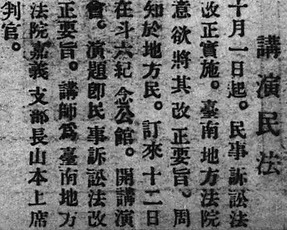 講演民法
十月一日起。民事訴訟法
改正實施。臺南地方法院
意欲將其改正要旨。周
知於地方民。訂來十二日
在斗六紀念公館。開講演
會。演題卽民事訴訟法改
正要旨。講師爲臺南地方
法院嘉義支部長山本上席
判官。